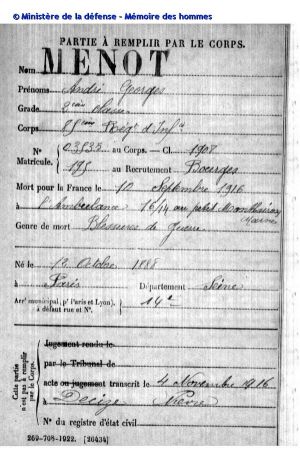 © Ministère de la défense - Mémoire des hommes
PARTIE À REMPLIR PAR LE CORPS.
Nom MENOT
Prénoms André Georges
Grade 2ème classe
Corps Rég. d'Inf.
N° au Corps. — Cl. 1908
Matricule. 195 au Recrutement Bourges
Mort pour la France le 10 Septembre 1916
à l'Ambulance 16/14 au petit
Genre de mort Blessures de Guerre
Né le 12 Octobre 1888
à Paris Département Seine
Arr' municipal (p' Paris et Lyon), à défaut rue et N°. 14e
Cette partie n'est pas à remplir par le Corps.
Jugement rendu le
par le Tribunal de
acte ou jugement transcrit le 4 Novembre 1916
à Decize Nièvre
N° du registre d'état civil
269-708-1922. [26434]